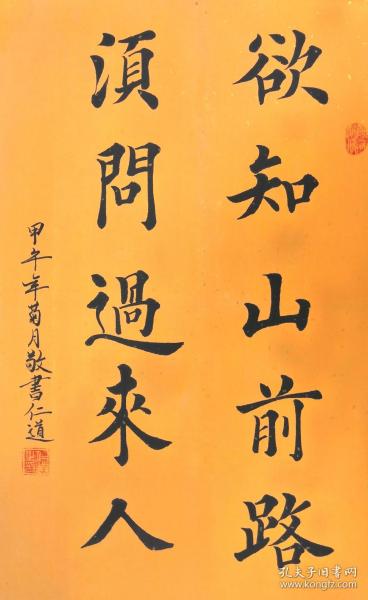 欲知山前路
須問過來人
甲午年菊月敬書仁道
孔夫子旧书网
www.kongfz.com